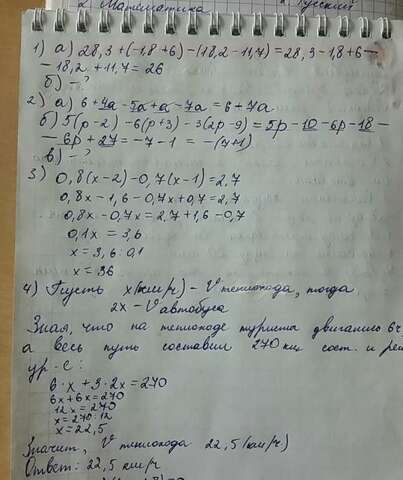 2 Математика
Русский
1) а) 28,3+(-1,8+6)-(18,2-11,7)=28,3-1,8+6-
-18,2+11,7=26
б) - ?
2) а) 6+4а-5а+а-7а=6+7а
б) 5(р-2)-6(р+3)-3(2р-9)=5р-10-6р-18-
-6р+27=-7-1=-(7+1)
в) - ?
3) 0,8(х-2)-0,7(х-1)=2,7
0,8х-1,6-0,7х+0,7=2,7
0,8х-0,7х=2,7+1,6-0,7
0,1х=3,6
х=3,6:0,1
х=36
4) Пусть х(км/ч)-V теплохода, тогда
2х-V автобуса
Зная, что на теплоходе туристы 6ч
а весь путь составил 270 км, сост. и реш
ур-е:
6·х+3·2х=270
6х+6х=270
12х=270
х=270:12
х=22,5
Значит, V теплохода 22,5(км/ч)
Ответ: 22,5 км/ч